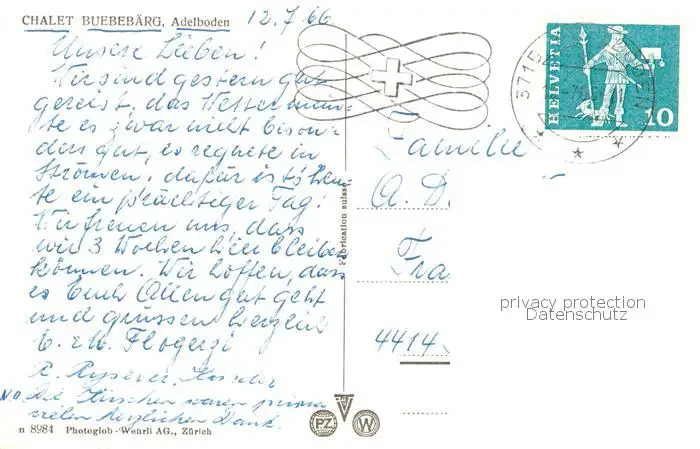 CHALET BUEBEBÄRG, Adelboden
12.7.66
Unsere Lieben!
Wir sind gestern gut
gereist, das Wetter
es zwar nicht beson-
ders gut, es regnete in
Strömen, dafür ist heu-
te ein prächtiger Tag!
Wir freuen uns, dass
wir 3 Wochen hier bleiben
können. Wir hoffen, dass
es Euch Allen gut geht
und grüssen herzlich
Die Kirschen waren prima
vielen herzlichen Dank.
n 8984 Photoglob-Wehrli AG., Zürich
Fabrication suisse
PZ W
3715
HELVETIA
10
Familie
A. D
Fra
4414
privacy protection
Datenschutz